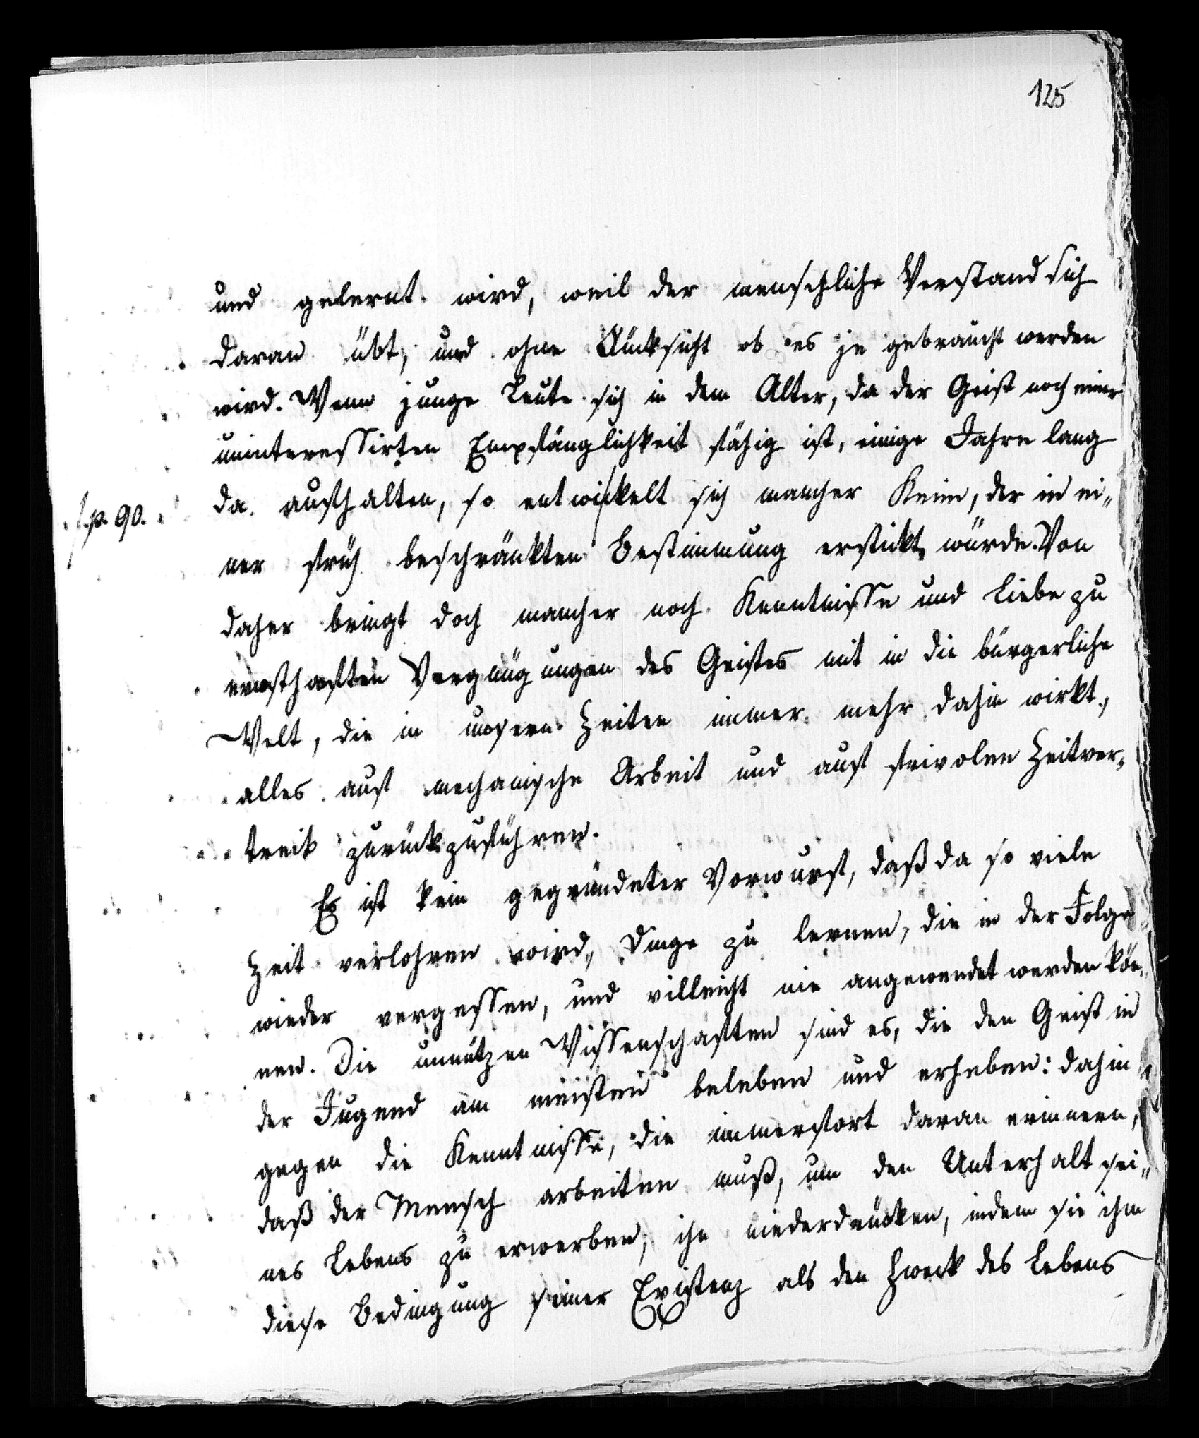 125
und gelernt wird, weil der menschliche Verstand sich
daran übt, und ohne Rücksicht ob es je gebraucht werden
wird. Wenn junge Leute sich in dem Alter, da der Geist noch einer
uninteressirten Empfänglichkeit fähig ist, einige Jahre lang
da aufhalten, so entwickelt sich mancher Keim, der in ei-
p. 90.
ner früh beschränkten Bestimmung erstickt würde. Von
daher bringt doch mancher noch Kenntnisse und Liebe zu
ernsthaften Vergnügungen des Geistes mit in die bürgerliche
Welt, die in unsern Zeiten immer mehr dahin wirkt,
alles auf mechanische Arbeit und auf frivolen Zeitver-
treib zurückzuführen.
Es ist kein gegründeter Vorwurf, daß da so viele
Zeit verlohren wird, Dinge zu lernen, die in der Folge
wieder vergessen, und villeicht nie angewendet werden kön-
nen. Die unnützen Wissenschaften sind es, die den Geist in
der Jugend am meisten beleben und erheben: dahin
gegen die Kenntnisse, die immerfort daran erinnern,
daß der Mensch arbeiten muß, um den Unterhalt sei-
nes Lebens zu erwerben, ihn niederdrücken, indem sie ihm
diese Bedingung seiner Existenz als den Zweck des Lebens